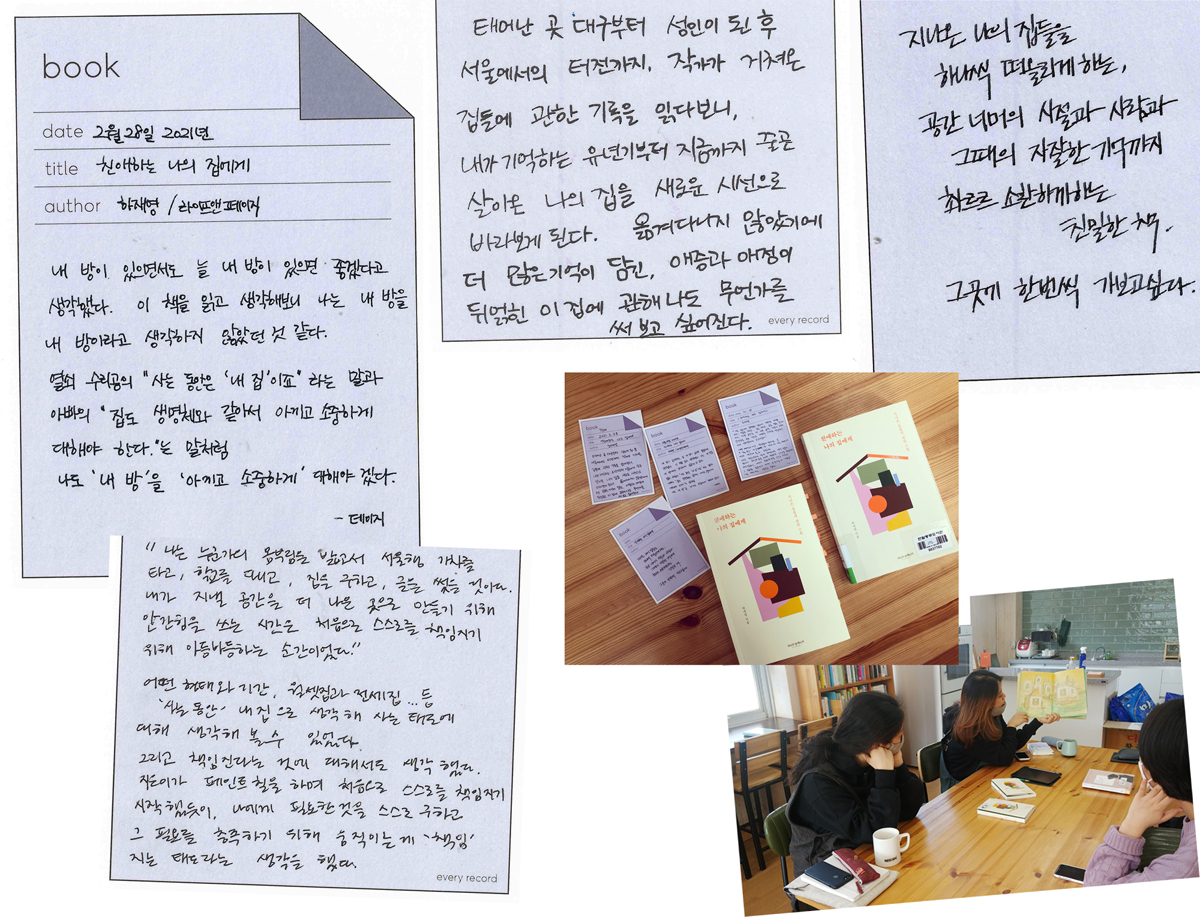 book
date 2월 28일 2021년
title 친애하는 나의 집에게
author 하재영 / 라이프앤페이지
내 방이 있으면서도 늘 내 방이 있으면 좋겠다고
생각했다. 이 책을 읽고 생각해보니 나는 내 방을
내 방이라고 생각하지 않았던 것 같다.
열쇠 수리공의 "사는 동안은 '내 집'이죠" 라는 말과
아빠의 "집도 생명체와 같아서 아끼고 소중하게
대해야 한다."는 말처럼
나도 '내 방'을 '아끼고 소중하게' 대해야 겠다.
- 데이지
태어난 곳 대구부터 성인이 된 후
서울에서의 터전까지, 작가가 거쳐온
집들에 관한 기록을 읽다보니,
내가 기억하는 유년기부터 지금까지 줄곧
살아온 나의 집을 새로운 시선으로
바라보게 된다. 옮겨다니지 않았기에
더 많은 기억이 담긴, 애증과 애정이
뒤얽힌 이 집에 관해 나도 무언가를
써 보고 싶어진다.
every record
지나온 나의 집들을
하나씩 떠올리게 하는,
공간 너머의 시절과 사람과
그때의 자잘한 기억까지
화르르 소환하게하는
친밀한 책.
그곳에 한번씩 가보고싶다.
"나는 누군가의 몸부림을 밟고서 서울행 기차를
타고, 학교를 다니고, 집을 구하고, 글을 썼을 것이다.
내가 지낼 공간을 더 나은 곳으로 만들기 위해
안간힘을 쓰는 시간은 처음으로 스스로를 책임지기
위해 아등바등하는 순간이었다."
어떤 형태와 기간, 월셋집과 전세집...등
'사는 동안' 내 집으로 생각해 사는 태도에
대해 생각해 볼 수 있었다.
그리고 책임진다는 것에 대해서도 생각했다.
작은이가 페인트칠을 하며 처음으로 스스로를 책임지기
시작했듯이, 나에게 필요한 것을 스스로 구하고
그 필요를 충족하기 위해 움직이는 게 '책임'
지는 태도라는 생각을 했다.
every record
친애하는
나의 집에게
친애하는
나의 집에게